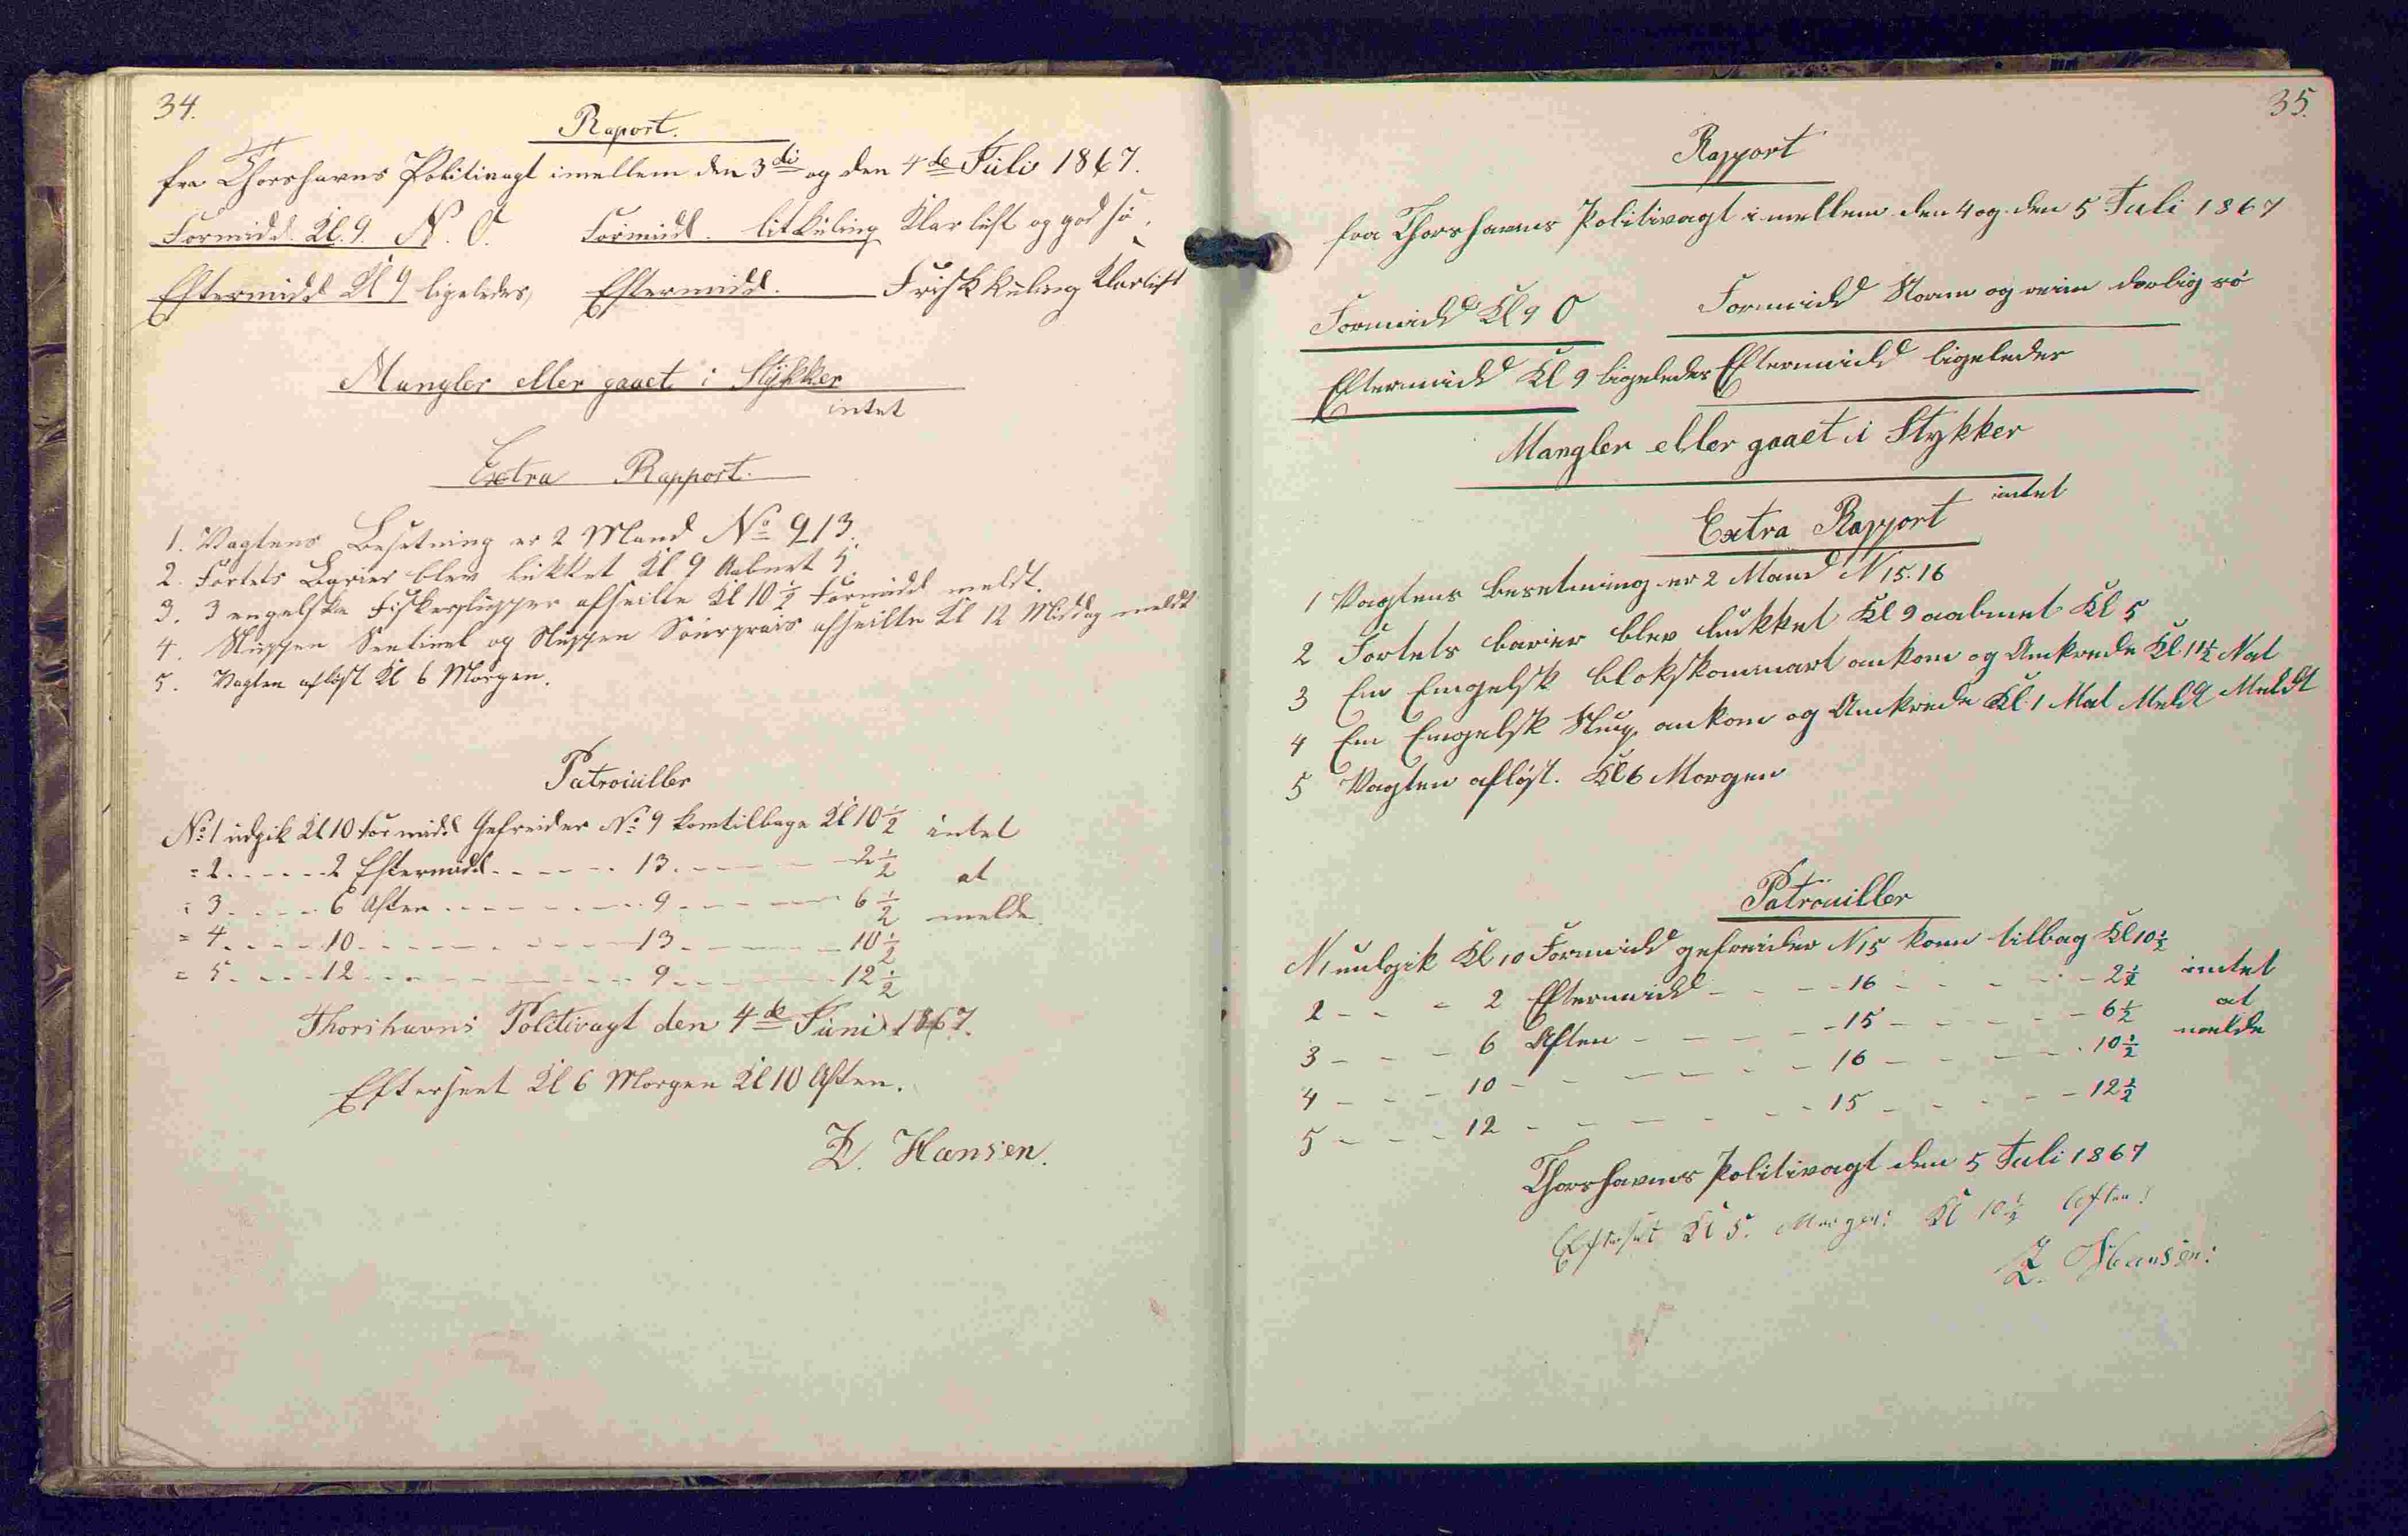 34.
Raport.
fra Thorshavns Politivagt imellem den 3di og den 4de Juli 1867.
Formidd. Kl. 9. N. O. Formidd. litkuling Klar luft og god sø.
Eftermidd Kl 9 ligeledes, Eftermidd. Frisk kuling Klarluft
Mangler eller gaaet i Stykker
intet
Extra Rapport.
1. Vagtens Besetning er 2 Mand No 9 13.
2. Fortets Barier blev lukket Kl 9 Aabnet 5.
3. 3 engelske Fiskerslupper afseilte Kl 10 1/2 Formidd meldt.
4. Sluppen Sentinel og Sluppen afseilte Kl 12 Middag meldt
5. Vagten afløst Kl 6 Morgen.
Patrouiller
No 1 udgik Kl 10 Formidd Gefreider No 9 kom tilbage Kl 10 1/2 intet
= 2 - - - - - 2 Eftermidd - - - - - 13 - - - - - 2 1/2 at
= 3 - - - - 6 Aften - - - - - - 9 - - - - - 6 1/2 melde.
= 4 - - - - 10 - - - - - - - 13 - - - - - 10 1/2
= 5 - - - 12 - - - - - - - 9 - - - - - 12 1/2
Thorshavns Politivagt den 4de Juni 1867.
Efterseet Kl 6 Morgen Kl 10 Aften.
Z. Hansen.
35.
Rapport
fra Thorshavns Politivagt imellem den 4 og den 5 Juli 1867
Formidd Kl 9 O Formidd Storm og rein dorlig sø
Eftermidd Kl 9 ligeledes Eftermidd ligeledes
Mangler eller gaaet i Stykker
intet
Extra Rapport
1 Vagtens besetning er 2 Mand N 15. 16
2 Fortets barier blev lukket Kl 9 aabnet Kl 5
3 En Engelsk blokskonnart ankom og Ankrede Kl 11 1/2 Nat
4 En Engelsk Slup ankom og Ankrede Kl. 1 Nat Meldt Meldt
5 Vagten afløst. Kl 6 Morgen
Patrouiller
N 1 uudgik Kl 10 Formidd gefreider N 15 kom tilbag Kl 10 1/2 intet
2 - - - 2 Eftermidd - - - - 16 - - - - - 2 1/2 at
3 - - - 6 Aften - - - - - 15 - - - - - 6 1/2 melde
4 - - - 10 - - - - - - 16 - - - - - 10 1/2
5 - - - 12 - - - - - - 15 - - - - - 12 1/2
Thorshavns Politivagt den 5 Juli 1867
Efterset Kl 5. Morgen: Kl 10 1/2 Aften!
Z. Hansen: